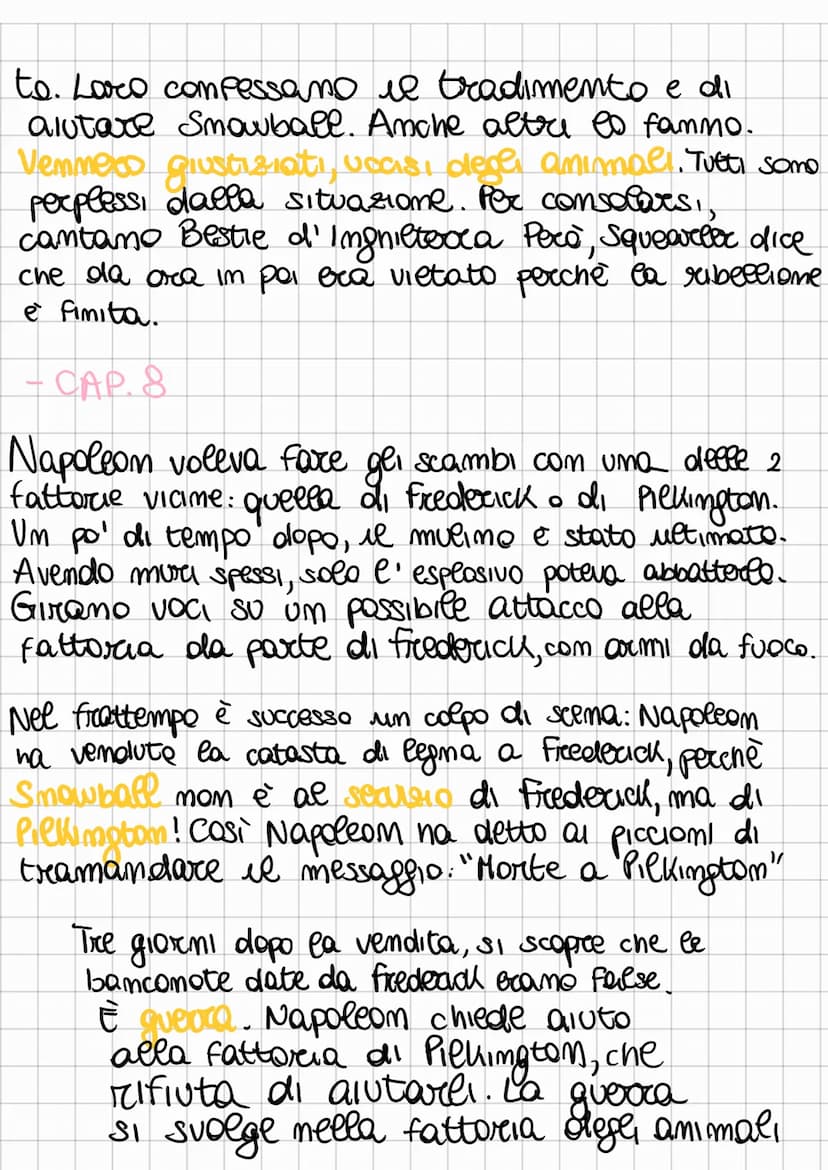 to. Loro confessano il tradimento e di
aiutare Snowball. Anche altri lo fanno.
Vennero giustiziati, uccisi degli animali. Tutti sono
perplessi dalla situazione. Per consolarsi,
cantano Bestie d'Imgnilterra Però, Squearler dice
che da ora in poi era vietato perchè la ribellione
è finita.
- CAP. 8
Napoleon voleva fare gli scambi con una delle 2
fattorie vicine: quella di Frederick o di Pielkington.
Un po' di tempo dopo, il mulino è stato ultimato.
Avendo muri spessi, solo l'esplosivo poteva abbatterlo.
Girano voci su un possibile attacco alla
fattoria da parte di Frederick, con armi da fuoco.
Nel frattempo è successo un colpo di scena: Napoleon
ha vendute la catasta di legna a Frederick, perchè
Snowball non è al servizio di Frederick, ma di
Pilkington! Così Napoleon ha detto ai piccioni di
tramandare il messaggio: "Morte a Pilkington"
Tre giorni dopo la vendita, si scopre che le
banconote date da Frederick erano false.
È guerra. Napoleon chiede aiuto
alla fattoria di Pielkington, che
rifiuta di aiutarli. La guerra
si svolge nella fattoria degli animali